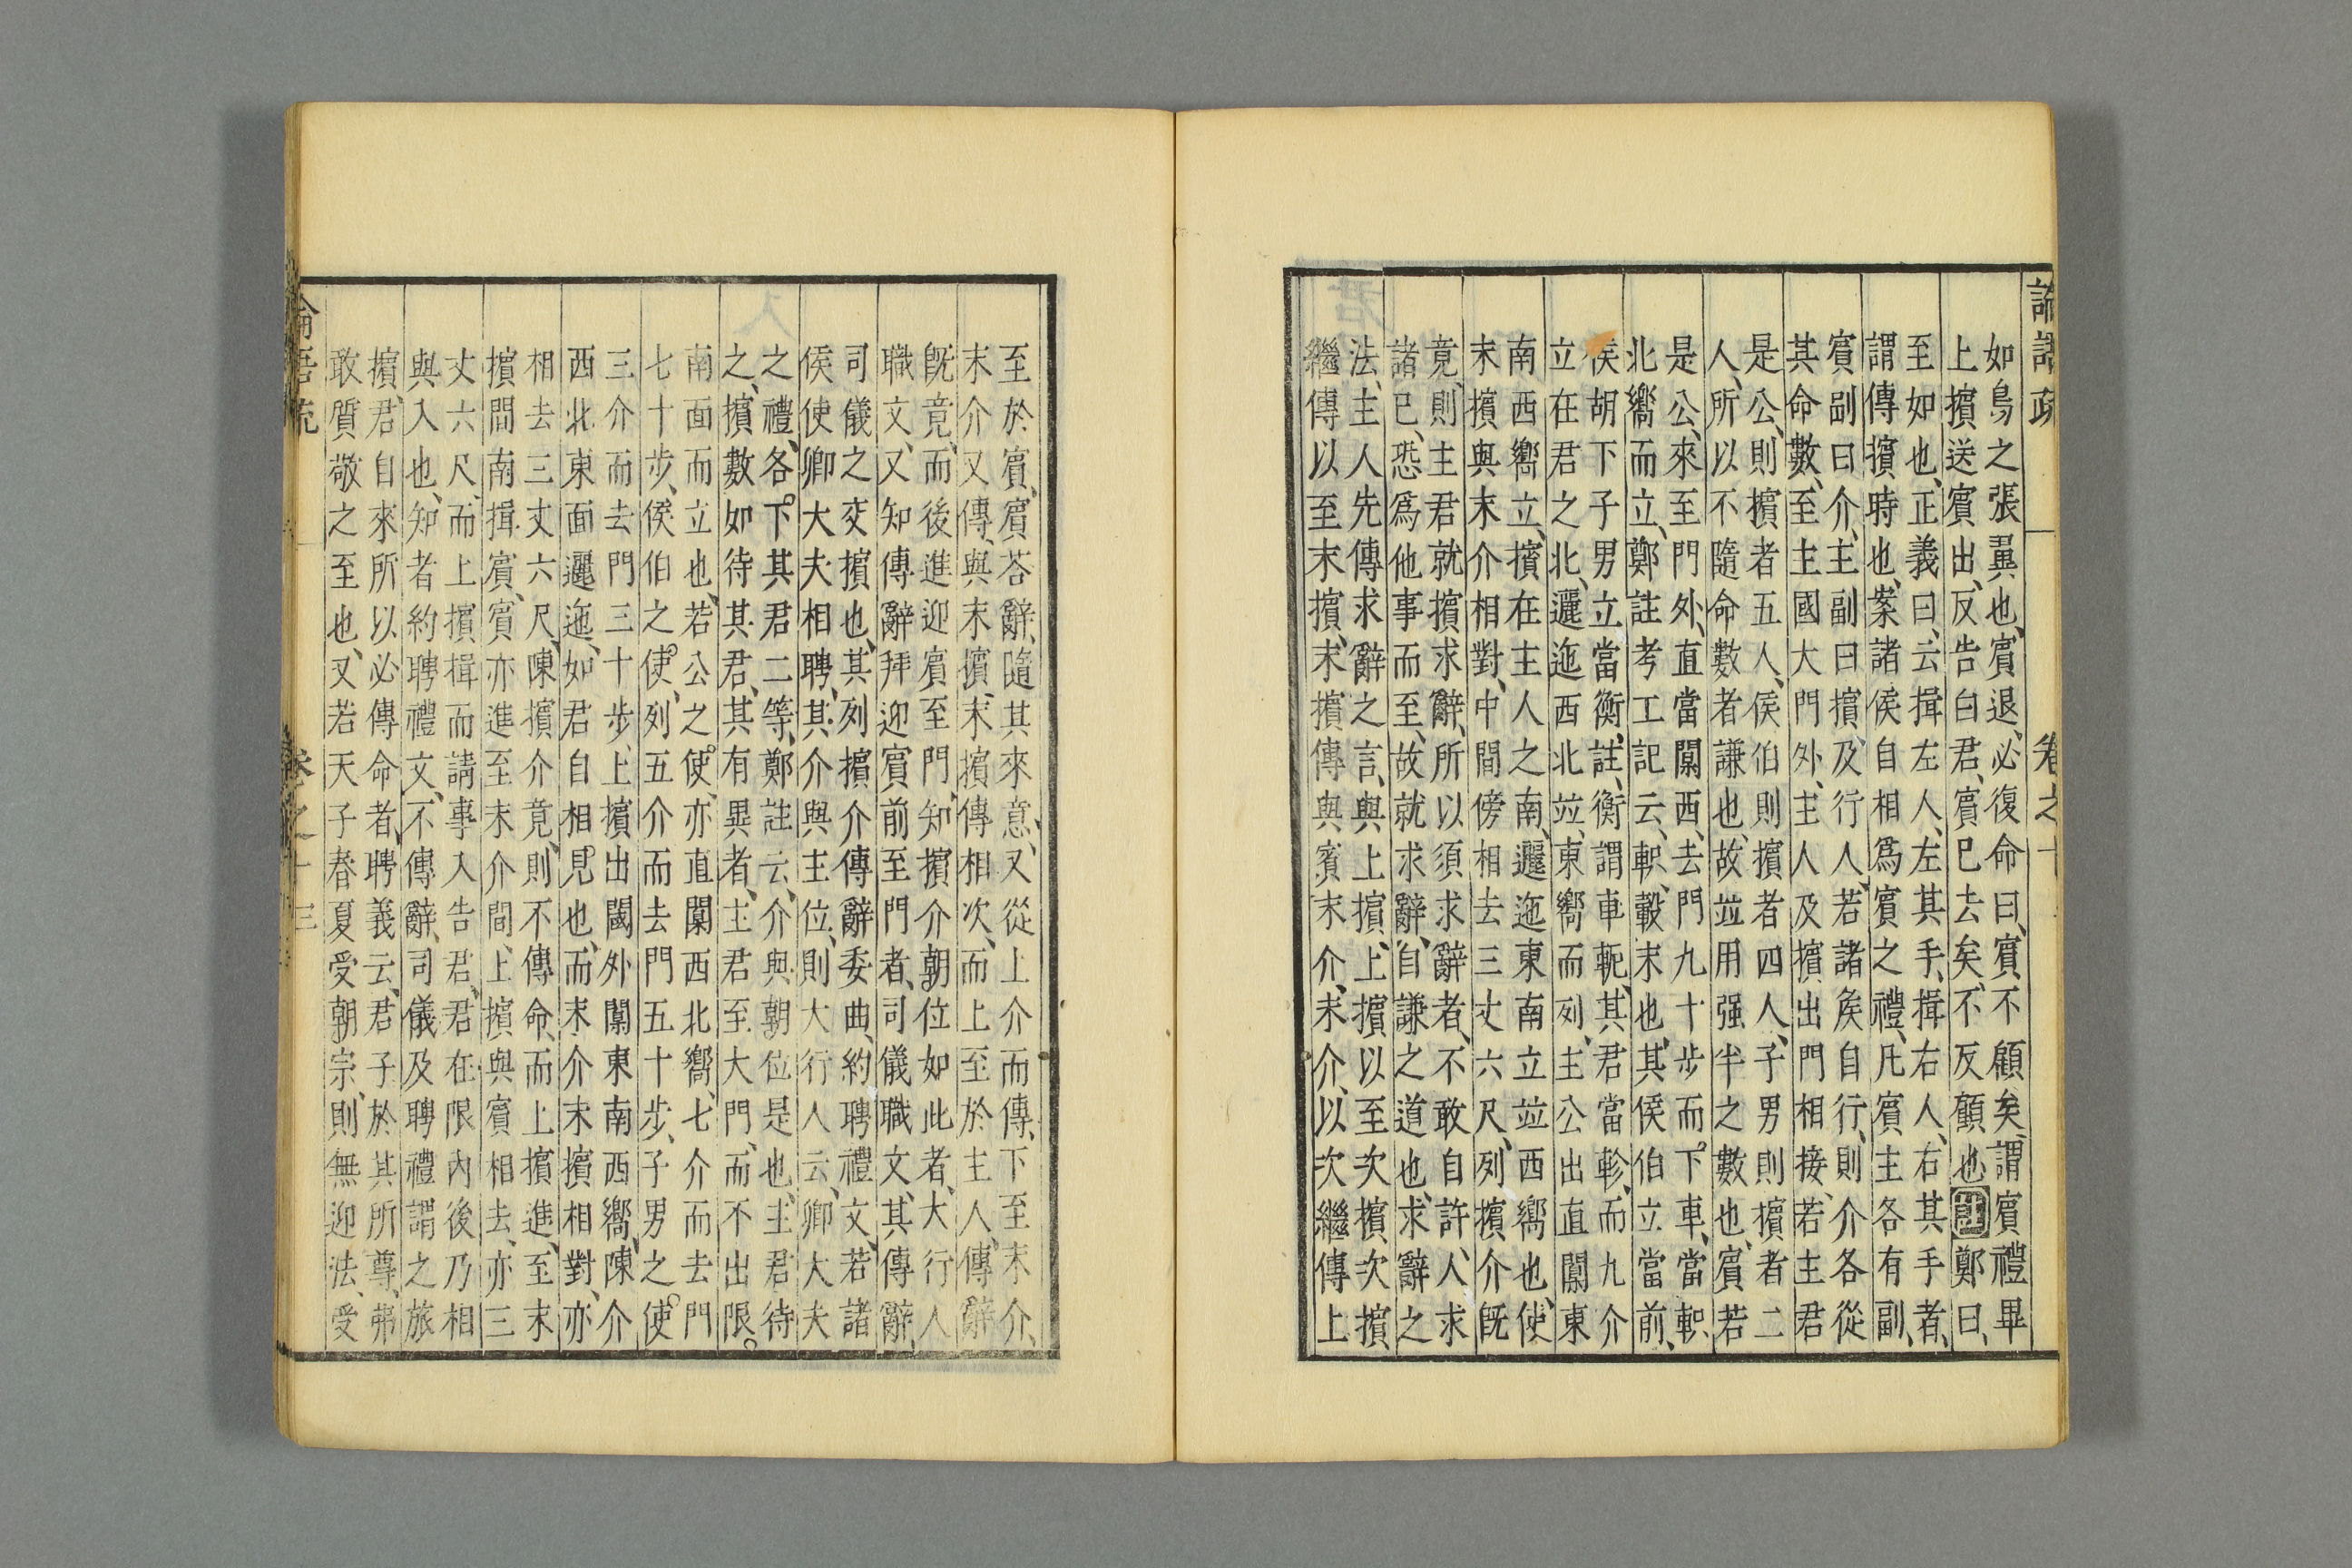 論語疏 卷之十
如鳥之張翼也、賓退、必復命曰、賓不顧矣、謂賓禮畢
上擯送賓出、反告白君、賓已去矣、不反顧也註鄭曰、
至如也、正義曰、云揖左人、左其手、揖右人、右其手者、
謂傳擯時也、案諸侯自相爲賓之禮、凡賓主各有副、
賓副曰介、主副曰擯、及行人、若諸矦自行、則介各從
其命數、至主國大門外、主人及擯出門相接、若主君
是公、則擯者五人、侯伯則擯者四人、子男則擯者二
人、所以不隨命數者謙也、故竝用强半之數也、賓若
是公、來至門外、直當闑西、去門九十步而下車、當軹
北嚮而立、鄭註考工記云、軹、轂末也、其侯伯立當前
侯胡下子男立當衡、註、衡謂車軛、其君當軫、而九介
立在君之北、邐迤西北竝東嚮而列、主公出直闑東
南西嚮立、擯在主人之南、邐迤東南立竝西嚮也、使
末擯與末介相對、中間傍相去三丈六尺、列擯介旣
竟、則主君就擯求辭、所以須求辭者、不敢自許、人求
諸已、恐爲他事而至、故就求辭、自謙之道也、求辭之
法、主人先傳求辭之言、與上擯、上擯以至次擯、次擯
繼傳以至末擯、末擯傳與賓末介、末介、以次繼傳上
至於賓、賓荅辭、隨其來意、又從上介而傳、下至末介、
末介又傳、與末擯、末擯傳相次、而上至於主人、傳辭
旣竟、而後進迎賓至門、知擯介朝位如此者、大行人
職文、又知傳辭拜迎賓前至門者、司儀職文、其傳辭、
司儀之交擯也、其列擯介傳辭委曲、約聘禮文、若諸
侯使卿大夫相聘、其介與主位、則大行人云、卿大夫
之禮、各下其君二等、鄭註云、介與朝位是也、主君待
之、擯數如待其君、其有異者、主君至大門、而不出限。
南面而立也、若公之使、亦直闑西北嚮、七介而去門
七十步、侯伯之使、列五介而去門五十步、子男之使
三介而去門三十步、上擯出閾外闑東南西嚮、陳介
西北東面邐迤、如君自相見也、而末介末擯相對、亦
相去三丈六尺、陳擯介竟、則不傳命、而上擯進、至末
擯間南揖賓、賓亦進至末介間、上擯與賓相去、亦三
丈六尺、而上擯揖而請事、入告君、君在限內後乃相
與入也、知者約聘禮文、不傳辭、司儀及聘禮謂之旅
擯、君自來所以必傳命者、聘義云、君子於其所尊、弗
敢質敬之至也、又若天子春夏受朝宗、則無迎法、受
卷之十 三